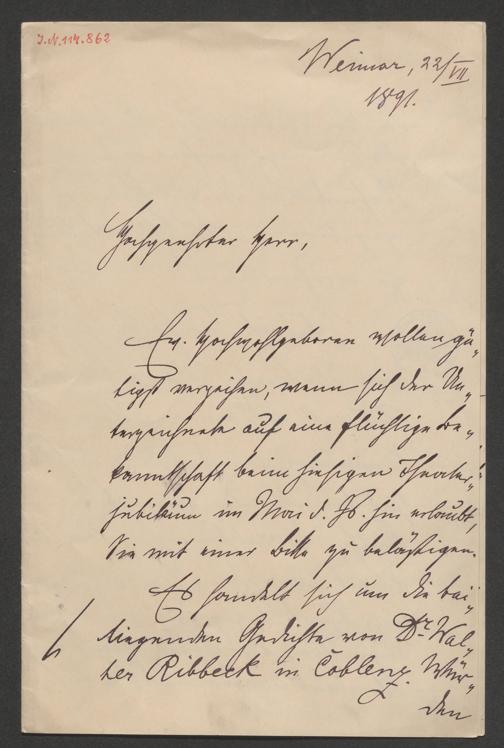 J.N. 114.862
Weimar, 22/VII
1891.
Hochgeehrter Herr,
Ew. Hochwohlgeboren wollen gü„
tigst verzeihen, wenn sich der Un„
terzeichnete auf eine flüchtige Be„
kanntschaft beim hiesigen Theater„
jubiläum im Mai d. Js. hin erlaubt,
Sie mit einer Bitte zu belästigen.
Es handelt sich um die bei„
liegenden Gedichte von Dr. Wal„
ter Ribbeck in Coblenz. Wür„
den